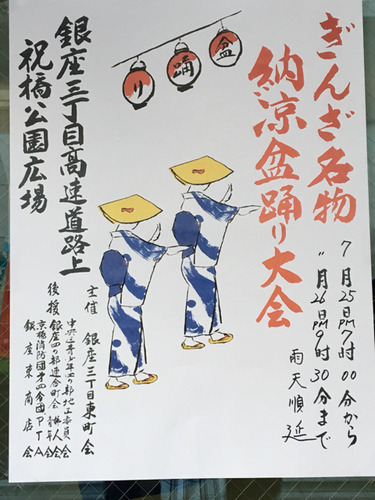 ぎんざ名物
納涼盆踊り大会
盆
踊
り
7月25日PM7時00分から
〃月26日PM9時30分まで
雨天順延
銀座三丁目高速道路上
祝橋公園広場
主催 銀座三丁目東町会
後援
銀座四の部連合町会
京橋消防団第四分団 PTA
銀座東商店会